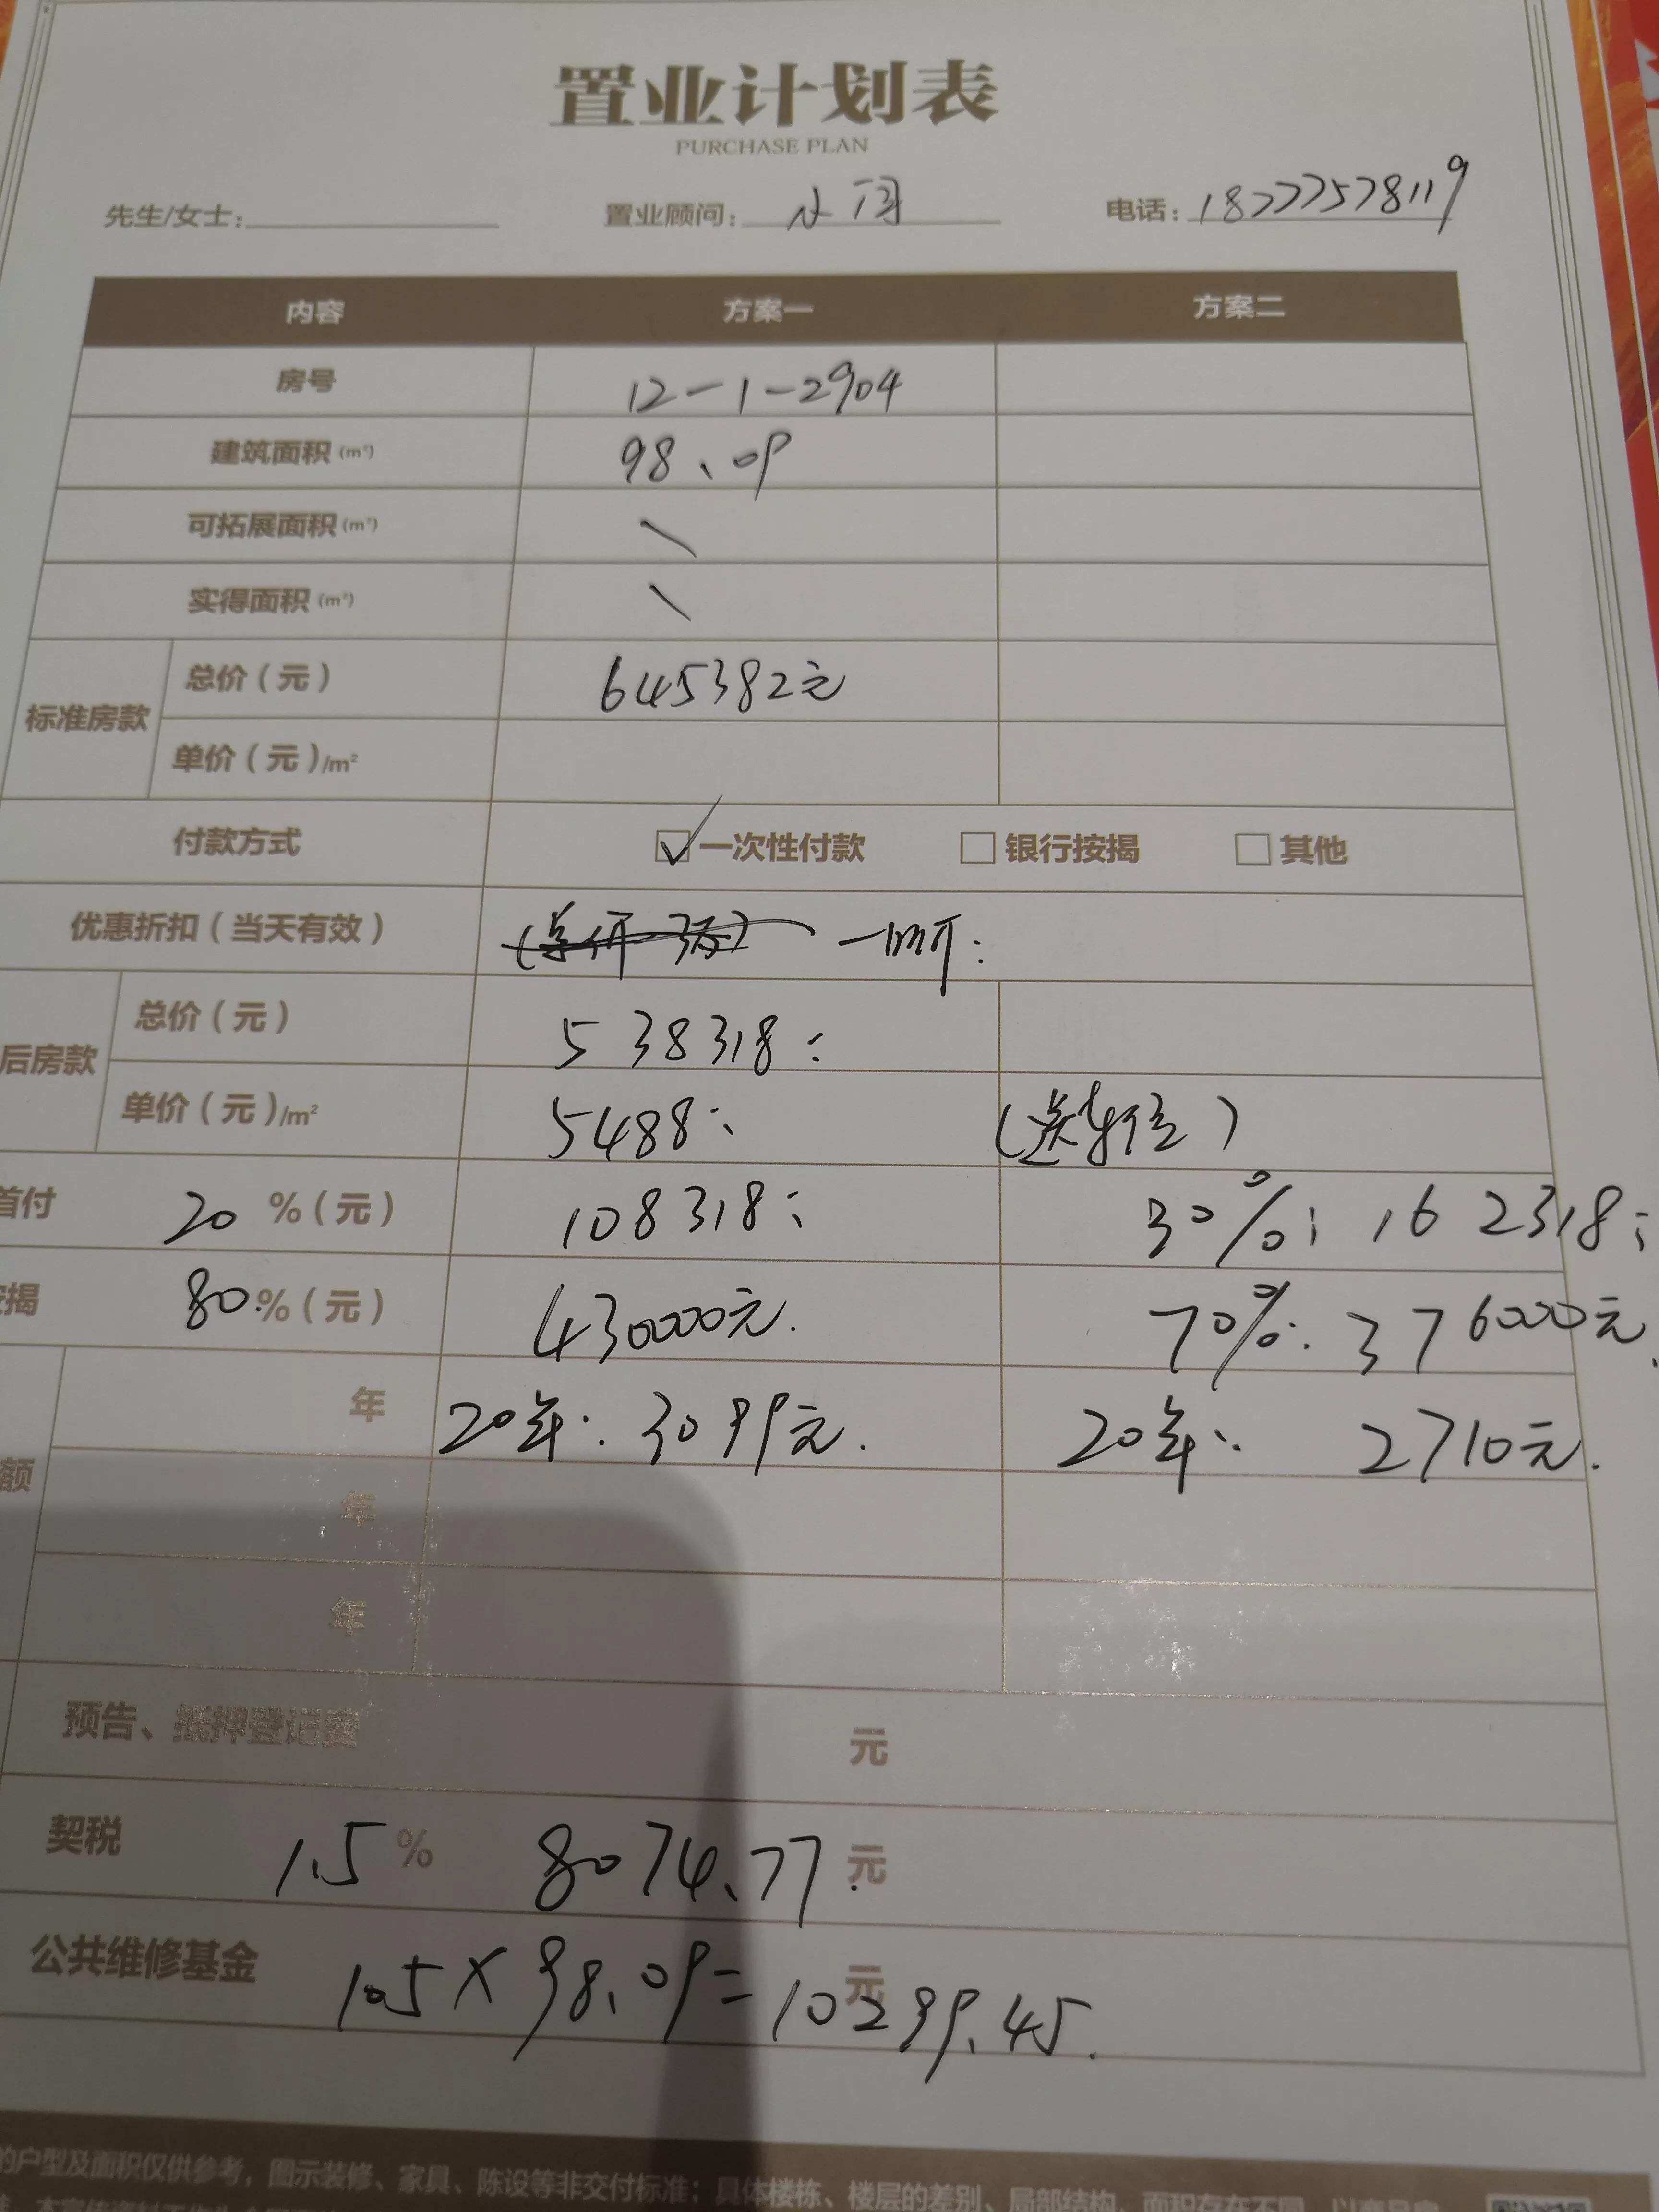 置业计划表
PURCHASE PLAN
先生/女士: 置业顾问: 小闭 电话: 18777578119
内容 方案一 方案二
房号 12-1-2904
建筑面积(m²) 98.09
可拓展面积(m²) \
实得面积(m²) \
标准房款 总价(元) 645382元
单价(元)/m²
付款方式 ☑一次性付款 □银行按揭 □其他
优惠折扣(当天有效)
后房款 总价(元) 538318:
单价(元)/m² 5488: (送车位)
首付 20 %(元) 108318: 30%: 162318:
按揭 80 %(元) 430000元. 70%: 376000元.
额 年 20年: 3099元. 20年: 2710元.
年
年
预告、抵押登记费 元
契税 1.5 % 8074.77 元
公共维修基金 105×98.09=10299.45. 元
的户型及面积仅供参考,图示装修、家具、陈设等非交付标准;具体楼栋、楼层的差别、局部结构、面积存在不同,以商品房